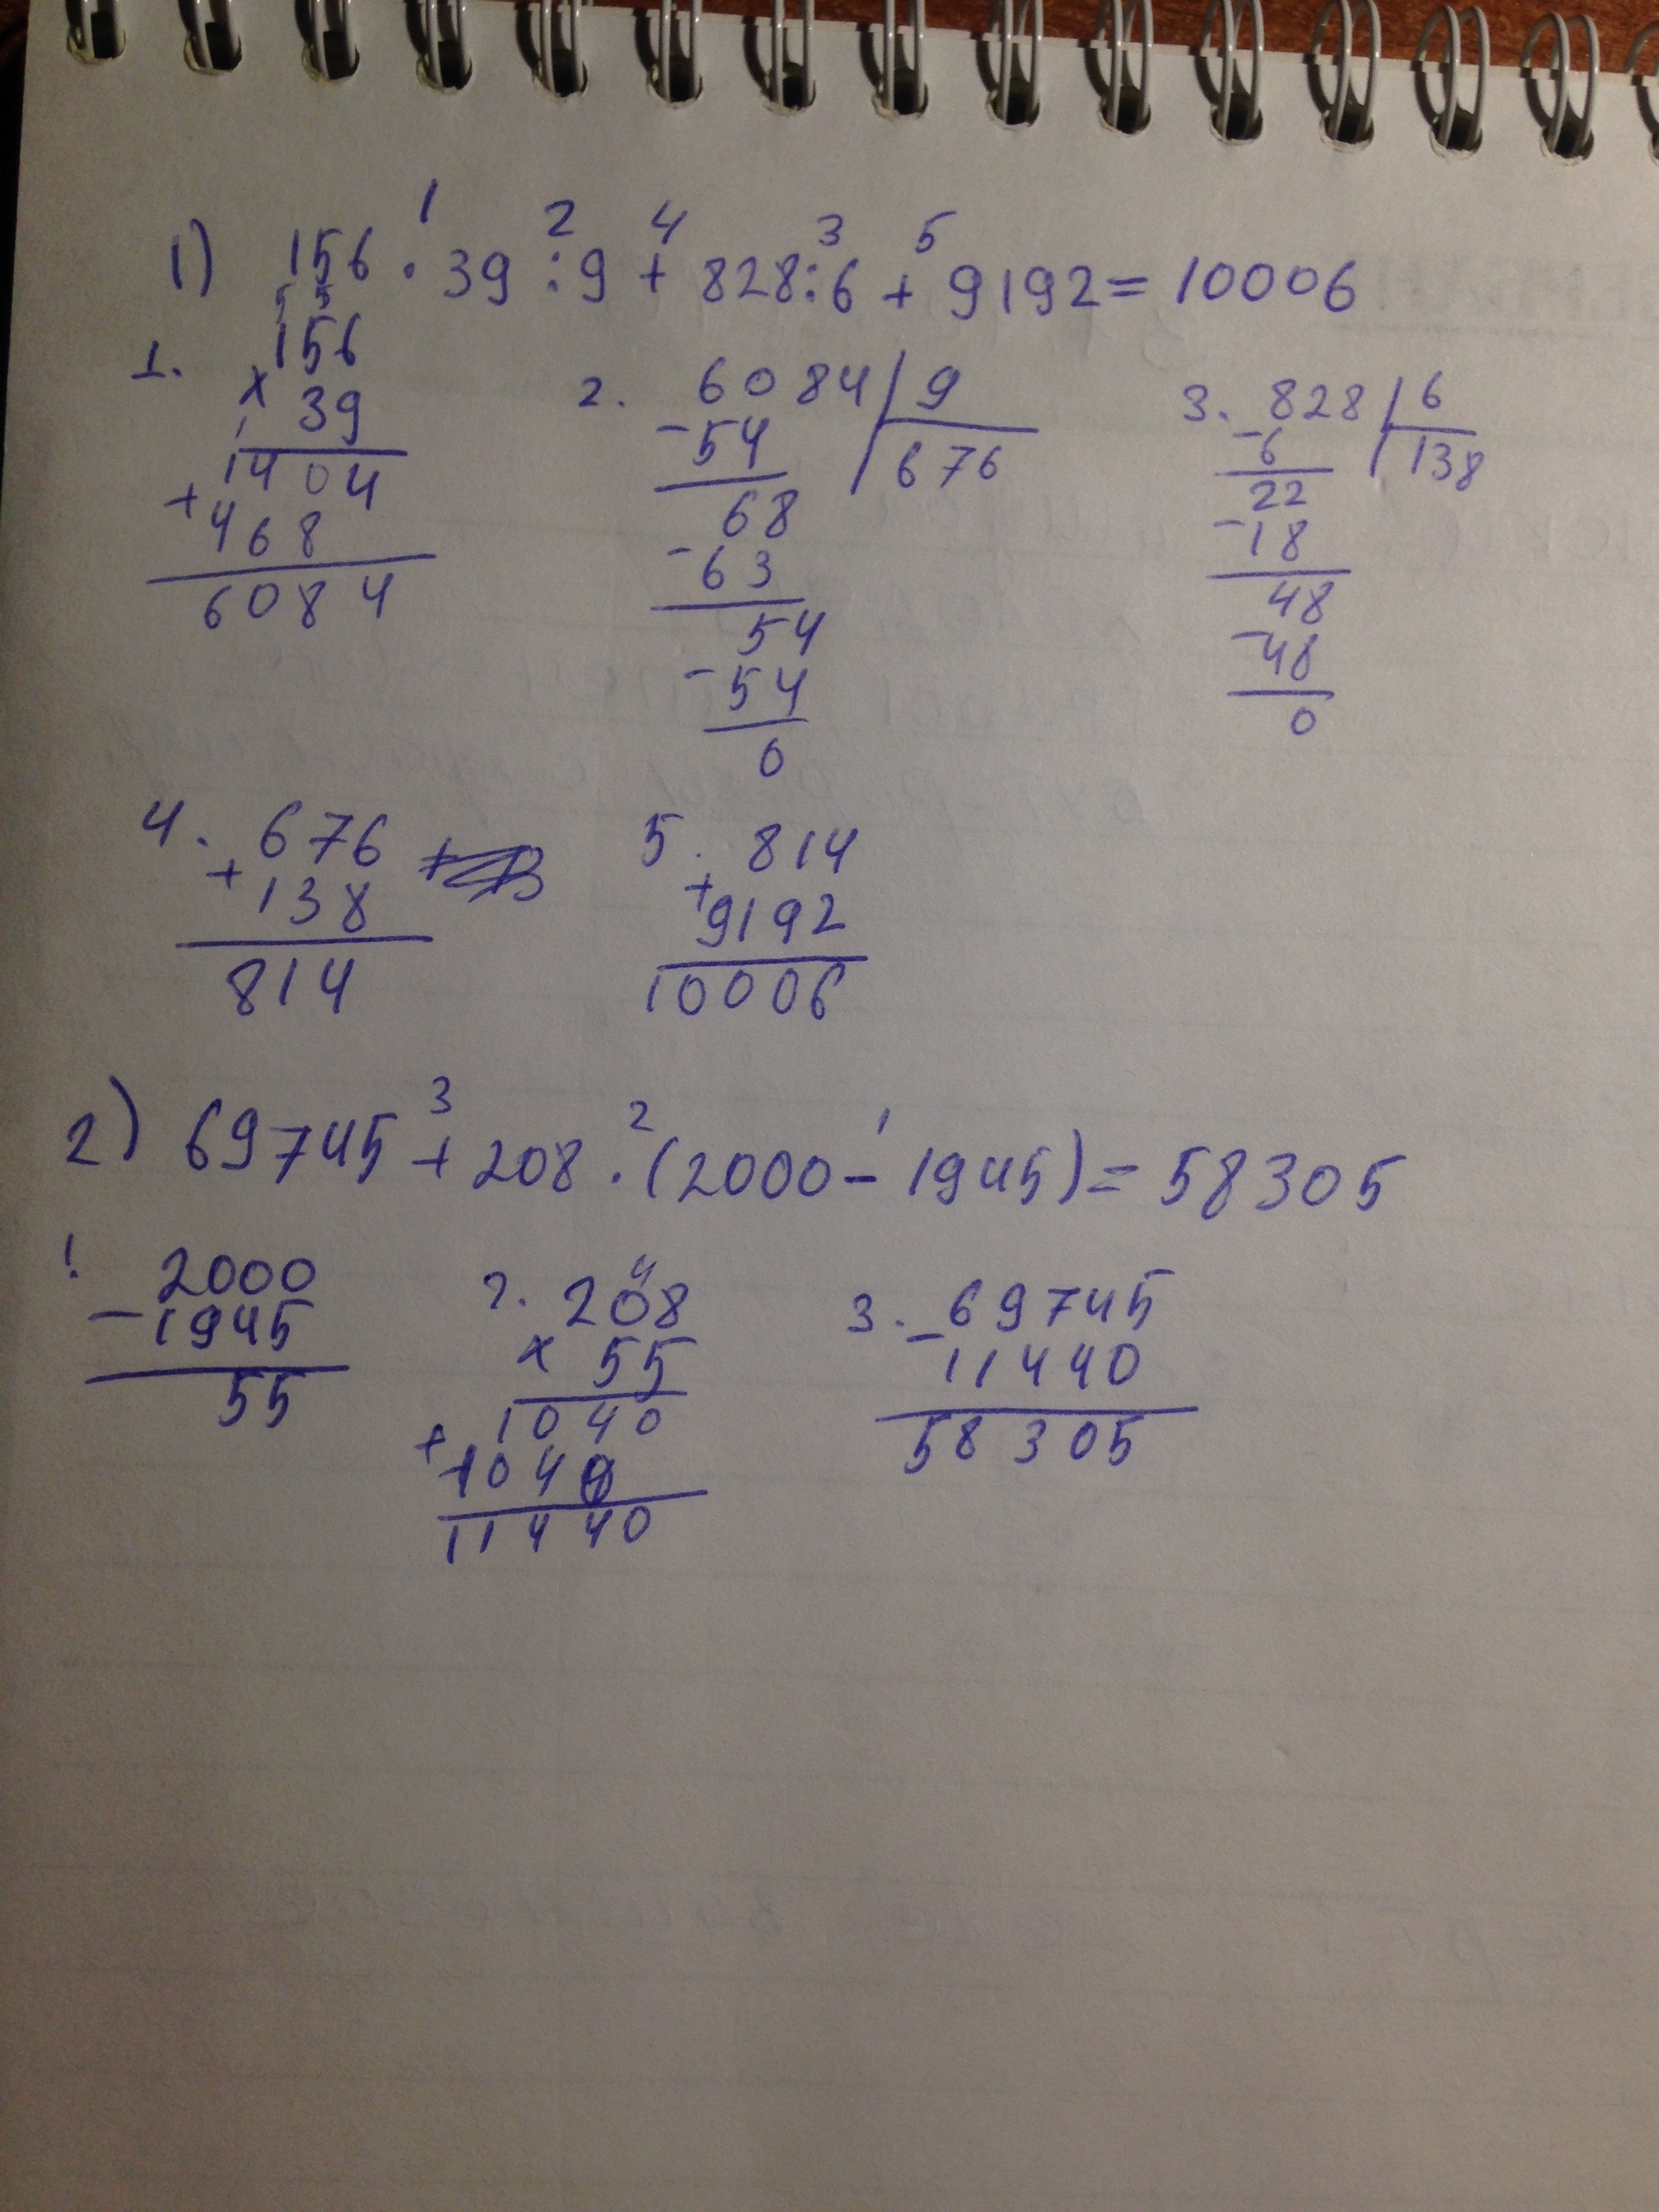 1 2 4 3 5
1) 156 · 39 : 9 + 828 : 6 + 9192 = 10006
5 5
1. 156
× 39
1404
+ 468
6084
2. 6084 | 9
- 54 | 676
68
- 63
54
- 54
0
3. 828 | 6
- 6 | 138
22
- 18
48
- 48
0
4. 676 +
+ 138
814
5. 814
+ 9192
10006
3 2 1
2) 69745 + 208 · (2000 - 1945) = 58305
1. 2000
- 1945
55
4
2. 208
× 55
1040
+ 1040
11440
3. - 69745
11440
58305